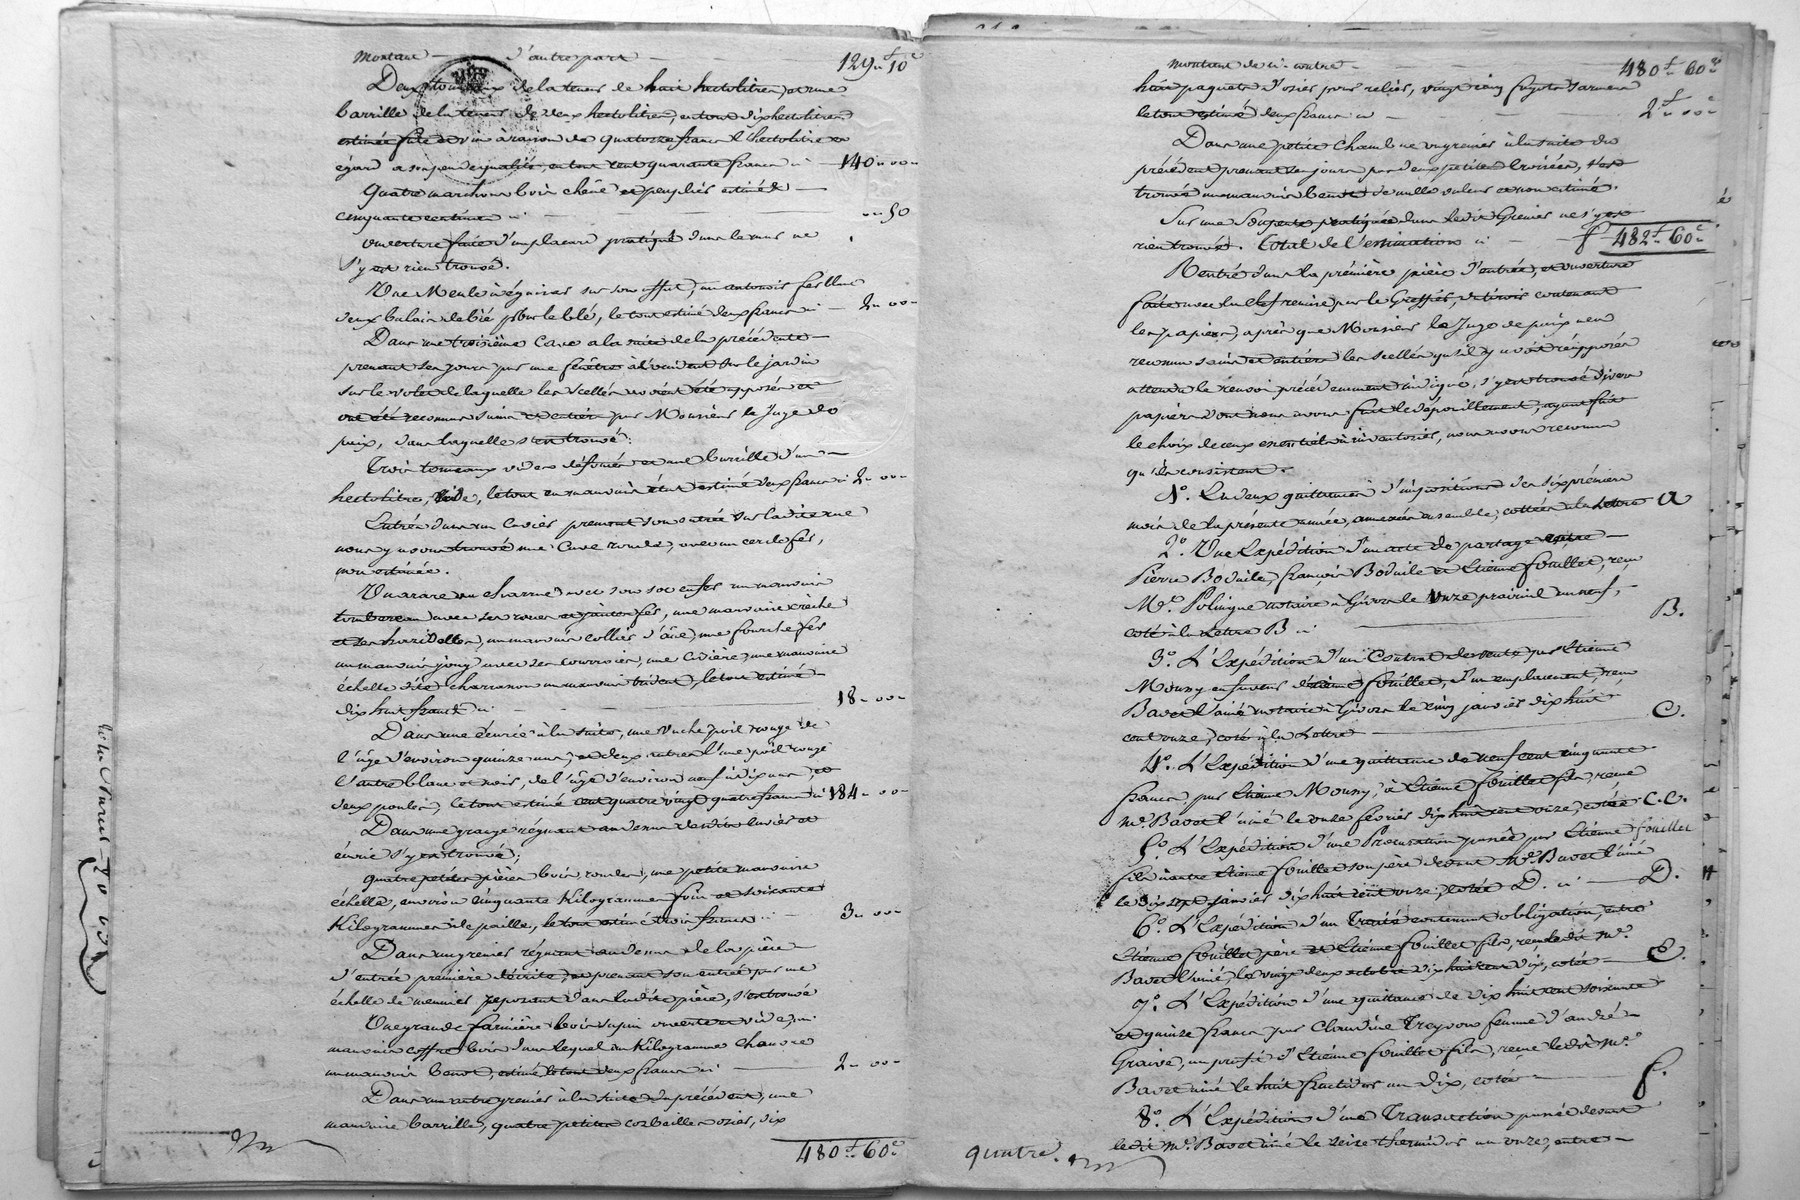 Montant d'autre part 129f 10c
Deux tonneaux de la teneur de huit hectolitres, et une
barrille de la teneur de deux hectolitres, en tout dix hectolitres
vin à raison de quatorze francs l'hectolitre
égard a son peu de qualité, en tout cent quarante francs ci 140 00
Quatre marchons bois chêne et peuplier estimés
cinquante centimes ci 50
Ouverture faite d'un placard pratiqué dans le mur ne
s'y est rien trouvé.
Une Meule à éguiser sur son affut, un
deux balais de blé, le tout estimé deux francs ci 2 00
Dans une troisième Cave a la suite de la précédente
prenant ses jours par une fenêtre à l'évident sur le jardin
sur le volet de laquelle les scellés avoient été apposés et
ont été reconnus sains et entiers par Monsieur le Juge de
paix, dans laquelle s'est trouvé :
Trois tonneaux vides défoncés et une barrille d'un
hectolitre, vide, le tout en mauvais état estimé deux francs ci 2 00
Entrés dans un Cuvier prenant son entrée sur la dite rue
nous y avons trouvé une Cuve ronde, avec un cercle fer,
non estimée.
Un arare ou charrue avec son soc enfer un mauvais
tombereau avec ses roues et fer, une mauvaise crèche
et ses haridelles, un mauvais collier d'âne, une fourche fer
un mauvais joug avec ses courroies, une civière, une mauvaise
échelle dite charrason un mauvais trident, le tout estimé
dix huit francs ci 18 00
Dans une écurie à la suite, une vache poil rouge de
l'âge d'environ quinze ans, et deux autres l'une poil rouge
l'autre blanc et noir, de l'âge d'environ neuf à dix ans, et
deux poules, le tout estimé cent quatre vingt quatre francs ci 184 00
Dans une grange régnant au dessus desdits cuvier et
écurie s'y est trouvé ;
quatre petites pièces bois rondes, une petite mauvaise
échelle, environ cinquante Kilogrammes foin et soixante
Kilogrammes de paille, le tout estimé trois francs ci 3 00
Dans un grenier régnant au dessus de la pièce
d'entrée première décrite, et prenant son entrée par une
échelle de meunier reposant dans ladite pièce, s'est trouvé
Une grande farinière bois sapin ouverte vide, un
mauvais coffre bois dans lequel un Kilogramme chanvre
un mauvais benot, estimé le tout deux francs ci 2 00
Dans un autre grenier à la suite du précédent, une
mauvaise barrille, quatre petites corbeilles osier, dix
480f 60c
Montant de ci-contre 480f 60c
huit paquets d'osier pour relier, vingt cinq fagots sarment
le tout estimé deux francs ci 2f 00c
Dans une petite Chambre ou grenier à la suite du
précédent prenant ses jours par deux petites croisées, s'est
trouvé un mauvais benot de nulle valeur et non estimé.
Sur une Soupente pratiquée dans ledit Grenier ne s'y est
rien trouvé. Total de l'estimation ci f 482f 60c
Rentré dans la première pièce d'entrée, et ouverture
faite avec la clef remise par le Greffier, du tiroir contenant
les papiers, après que Monsieur le Juge de paix ait
reconnu sains et entiers les scellés qu'il y avoit réapposés
attendu le renvoi précédemment indiqué, s'y est trouvé divers
papiers dont nous avons fait le dépouillement, ayant fait
le choix de ceux essentiels à inventorier, nous avons reconnu
qu'ils consistent.
1°. En deux quittances d'impositions des six premiers
mois de la présente année, annexées ensemble, cottées a la Lettre A
2°. Une Expédition d'un acte de partage entre
Pierre Boduile, françois Boduile et Etienne fouillet, reçu
Me. Polingue notaire à Givors le onze prairial an neuf,
coté à la Lettre B ci B.
3°. L'Expédition d'un Contrat de vente par Etienne
Mouny en faveur d'Etienne fouillet, d'un emplacement, reçu
Bavet l'ainé notaire à Givors le cinq janvier dix huit
cent onze, coté à la Lettre C.
4°. L'Expédition d'une quittance de neuf cent cinquante
francs, par Etienne Mouny, à Etienne fouillet fils, reçue
Me. Bavet l'ainé le onze fevrier dix huit cent onze, cotée C.C.
5°. L'Expédition d'une Procuration passée par Etienne fouillet
fils à autre Etienne fouillet son père devant Me. Bavet l'ainé
le dix sept janvier dix huit cent onze, cotée D. ci D.
6°. L'Expédition d'un Traité contenant obligation, entre
Etienne fouillet père et Etienne fouillet fils, reçu ledit Me.
Bavet l'ainé, le vingt deux octobre dix huit cent dix, cotée E.
7°. L'Expédition d'une quittance de dix huit cent soixante
et quinze francs par Claudine Treyvou femme d'andré
Graive, au profit d'Etienne fouillet fils, reçue ledit Me.
Bavet ainé le huit fructidor an dix, cotée f.
8°. L'Expédition d'une Transaction passée devant
ledit Me. Bavet ainé le seize thermidor an onze, entre
quatre.